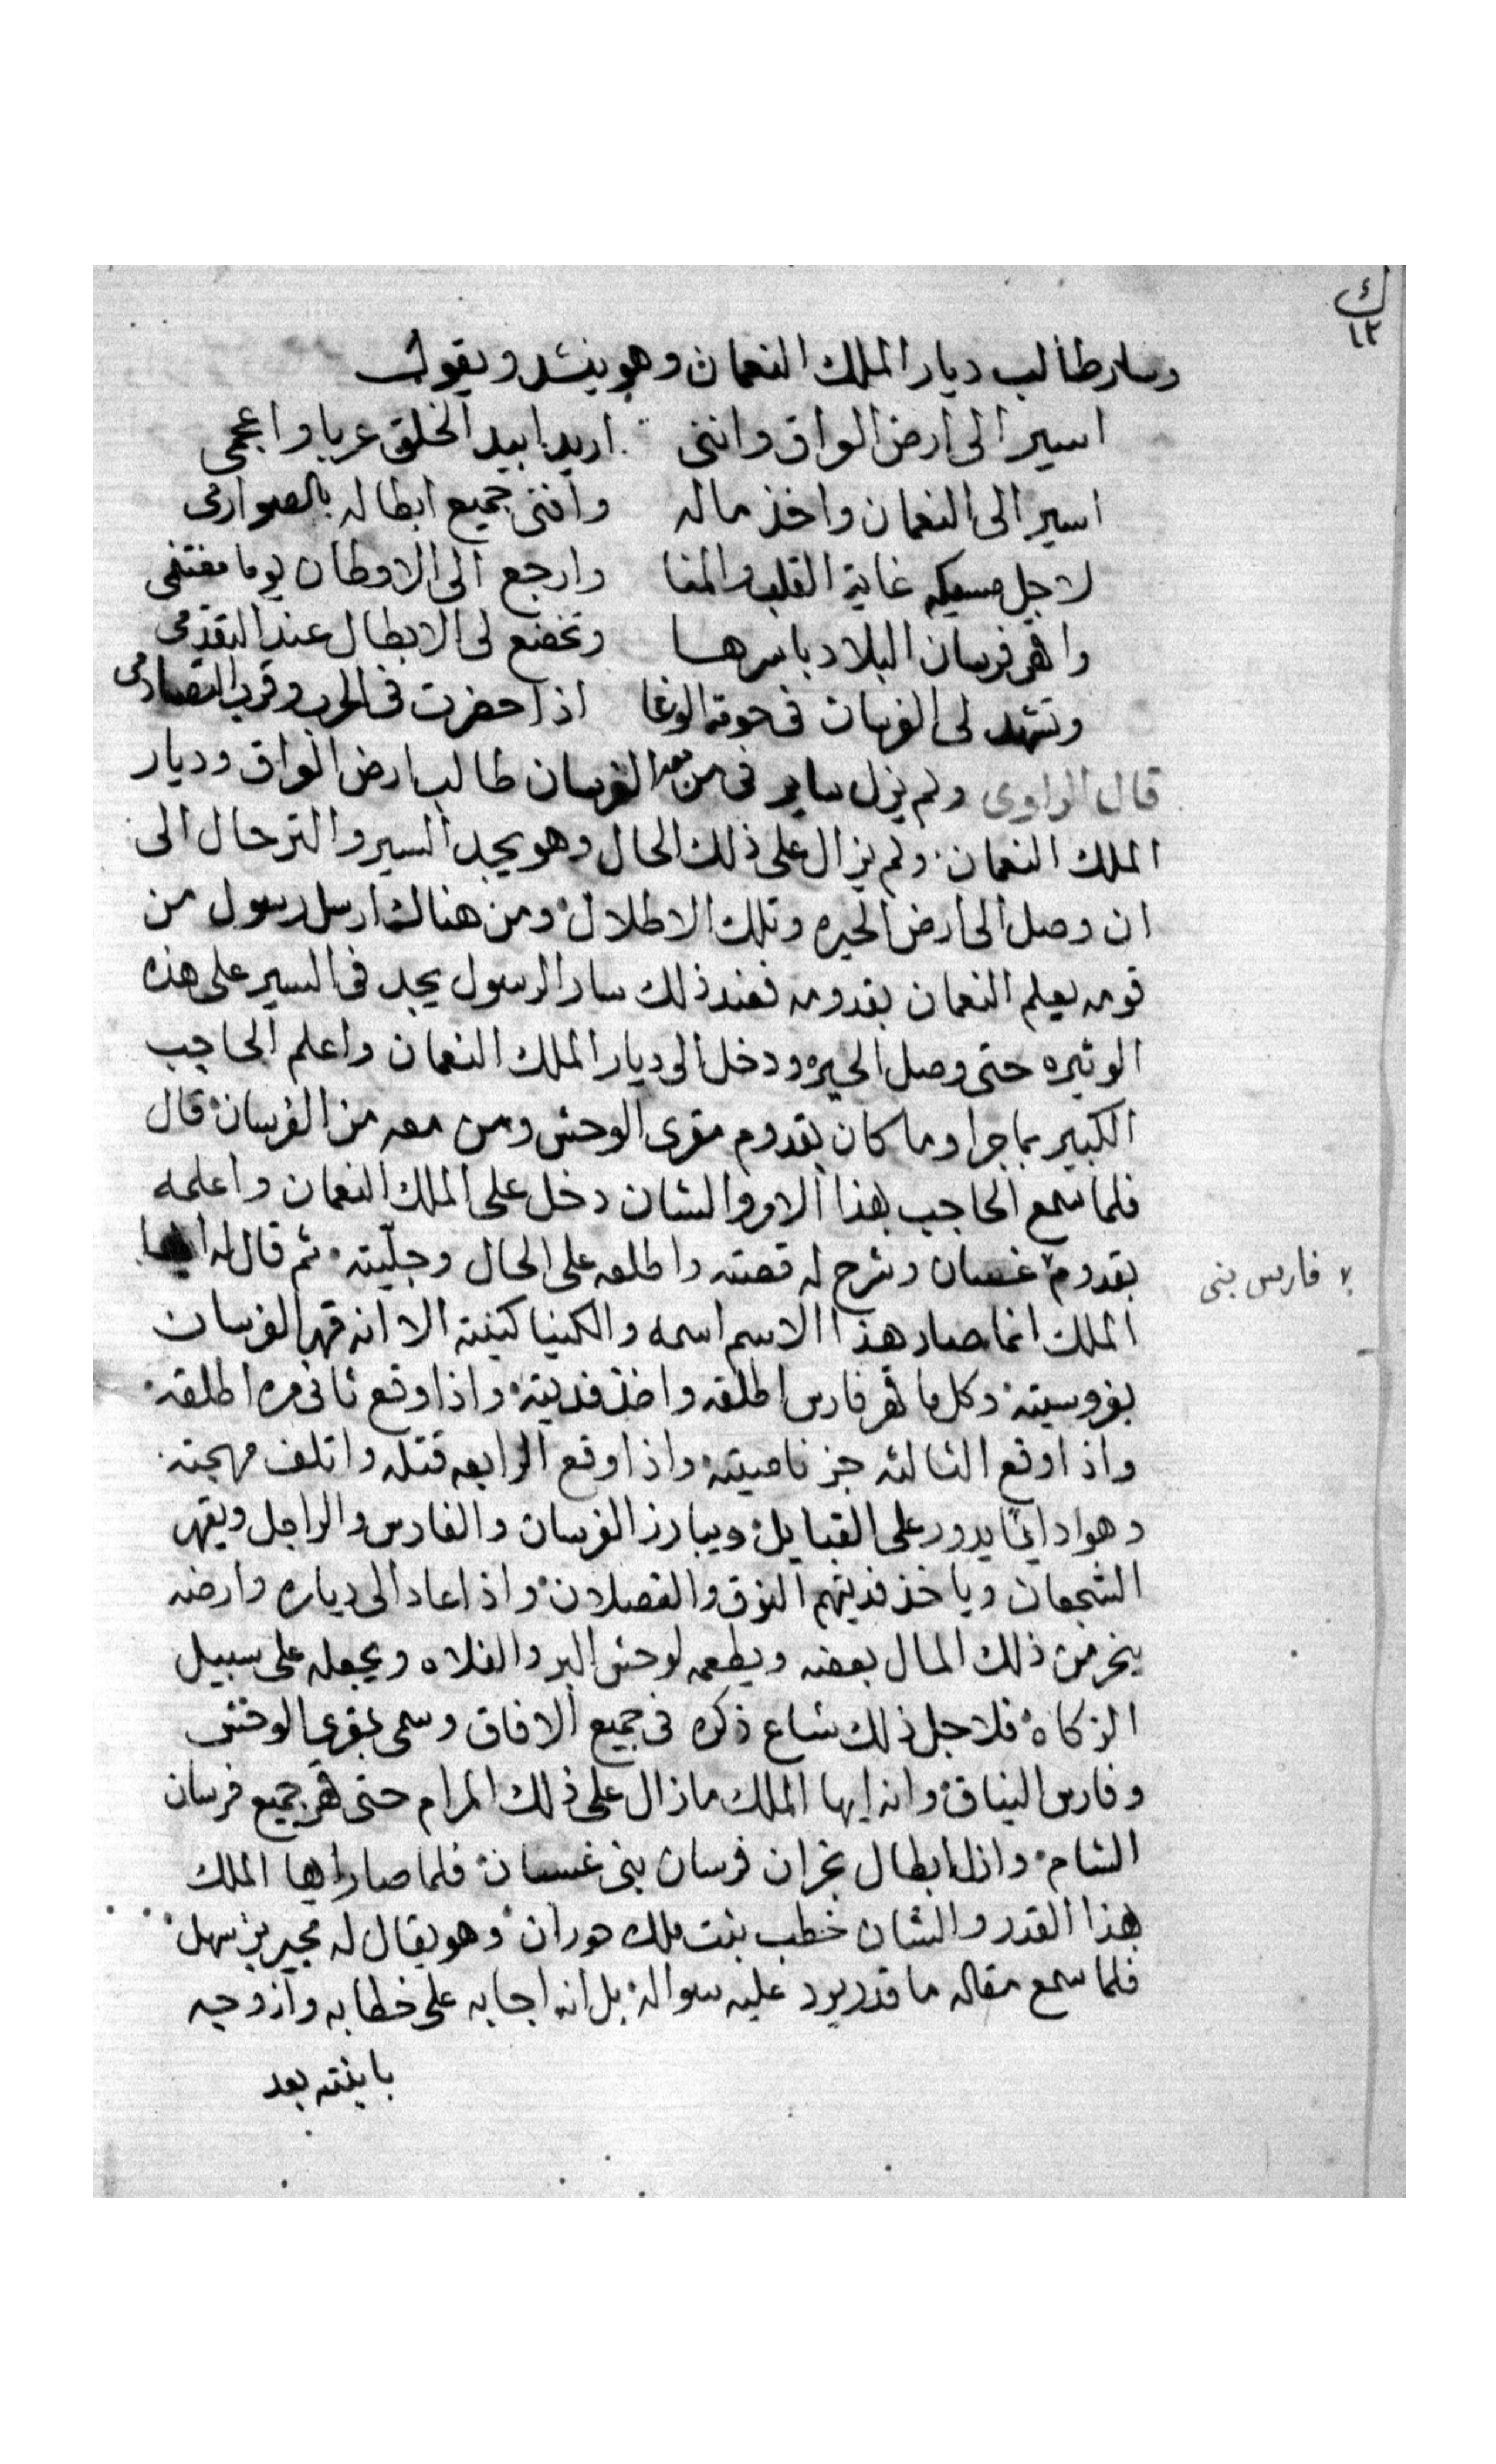 ك
١٢
وسار طالب ديار الملك النعمان وهو ينشد ويقول
اسير الى ارض العراق وانني اريد ابيد الخلق عربا واعجمي
اسير الى النعمان واخذ ماله وافني جميع ابطاله بالصوارمي
لاجل مسيكه غاية القلب والمنا وارجع الى الاوطان يوما مغتنمي
واقهر فرسان البلاد باسرها وتخضع لى الابطال عند التقدمي
وتشهد لى الفرسان في حومة الوغا اذا حضرت في الحرب وقرب التصادمي
قال الراوى ولم يزل ساير في من معه الفرسان طالب ارض العراق وديار
الملك النعمان ولم يزال على ذلك الحال وهو يجد السير والترحال الى
ان وصل الى ارض الحيره وتلك الاطلال ومن هناك ارسل رسول من
قومه يعلم النعمان بقدومه فعند ذلك سار الرسول يجد في السير على هذه
الوتيره حتى وصل الحيره ودخل الى ديار الملك النعمان واعلم الحاجب
الكبير بما جرا وما كان بقدوم مقرى الوحش ومن معه من الفرسان قال
فلما سمع الحاجب بهذا الامر والشان دخل على الملك النعمان واعلمه
بقدوم غسان وشرح له قصته واطلعه على الحال وجليته ثم قال له ايها
فارس بنى
الملك انما صار هذا الاسم اسمه والكنيا كنيته الا انه قهر الفرسان
بفروسيته وكل ما قهر فارس اطلقه واخذ فديته واذا وقع ثاني مره اطلقه
واذا وقع الثالثه جز ناصيته واذا وقع الرابعه قتله واتلف مهجته
وهو دايما يدور على القبايل ويبارز الفرسان والفارس والراجل ويقهر
الشجعان وياخذ فديتهم النوق والفصلان واذا عاد الى دياره وارضه
ينحر من ذلك المال بعضه ويطعمه لوحش البر والفلاه ويجعله على سبيل
الزكاة فلاجل ذلك شاع ذكره في جميع الافاق وسمى بمقرى الوحش
وفارس النياق وانه ايها الملك مازال على ذلك المرام حتى قهر جميع فرسان
الشام واذل ابطال نجران فرسان بنى غسان فلما صار ايها الملك
بهذا القدر والشان خطب بنت ملك حوران وهو يقال له مجير بن سهل
فلما سمع مقاله ما قدر يرد عليه سواله بل انه اجابه على خطابه وازوجه
بابنته بعد